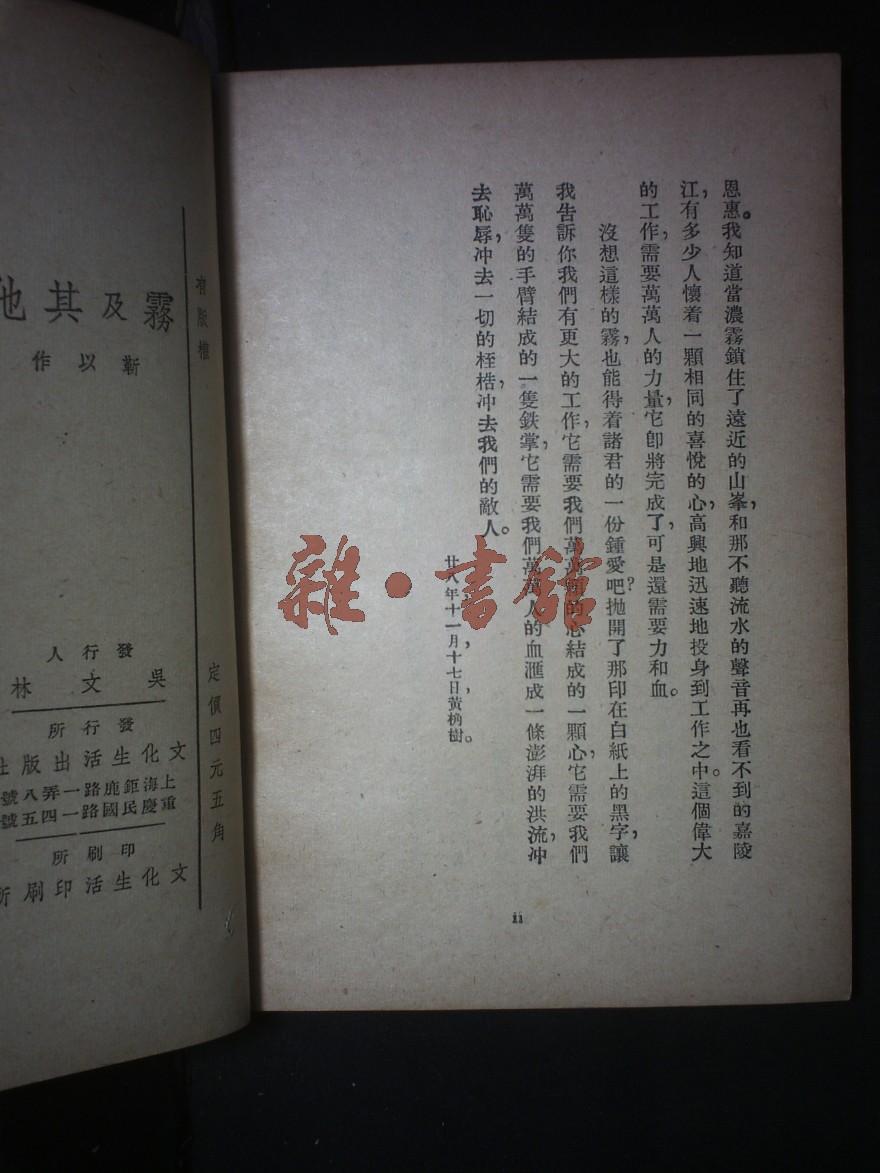 恩惠。我知道當濃霧鎖住了遠近的山峯，和那不聽流水的聲音再也看不到的嘉陵
江，有多少人懷着一顆相同的喜悅的心，高興地迅速地投身到工作之中。這個偉大
的工作，需要萬萬人的力量，它卽將完成了，可是還需要力和血。
沒想這樣的霧，也能得着諸君的一份鍾愛吧？拋開了那印在白紙上的黑字，讓
我告訴你我們有更大的工作，它需要我們萬萬顆的心結成的一顆心，它需要我們
萬萬隻的手臂結成的一隻鉄掌，它需要我們萬萬人的血滙成一條澎湃的洪流，冲
去恥辱，冲去一切的桎梏，冲去我們的敵人。
廿八年十一月十七日，黃桷樹。
11
雜·書館
有版權
定價四元五角
霧及其他
靳以作
發行人
吳文林
發行所
文化生活出版社
上海鉅鹿路一弄八號
重慶民國路一四五號
印刷所
文化生活印刷所